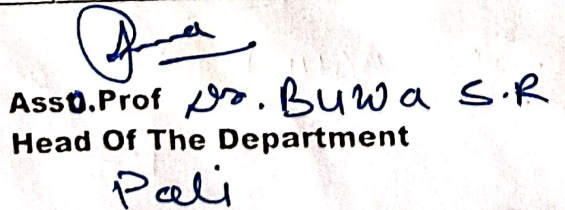 Asso.Prof Dr. Buwa S.R
Head Of The Department
Pali